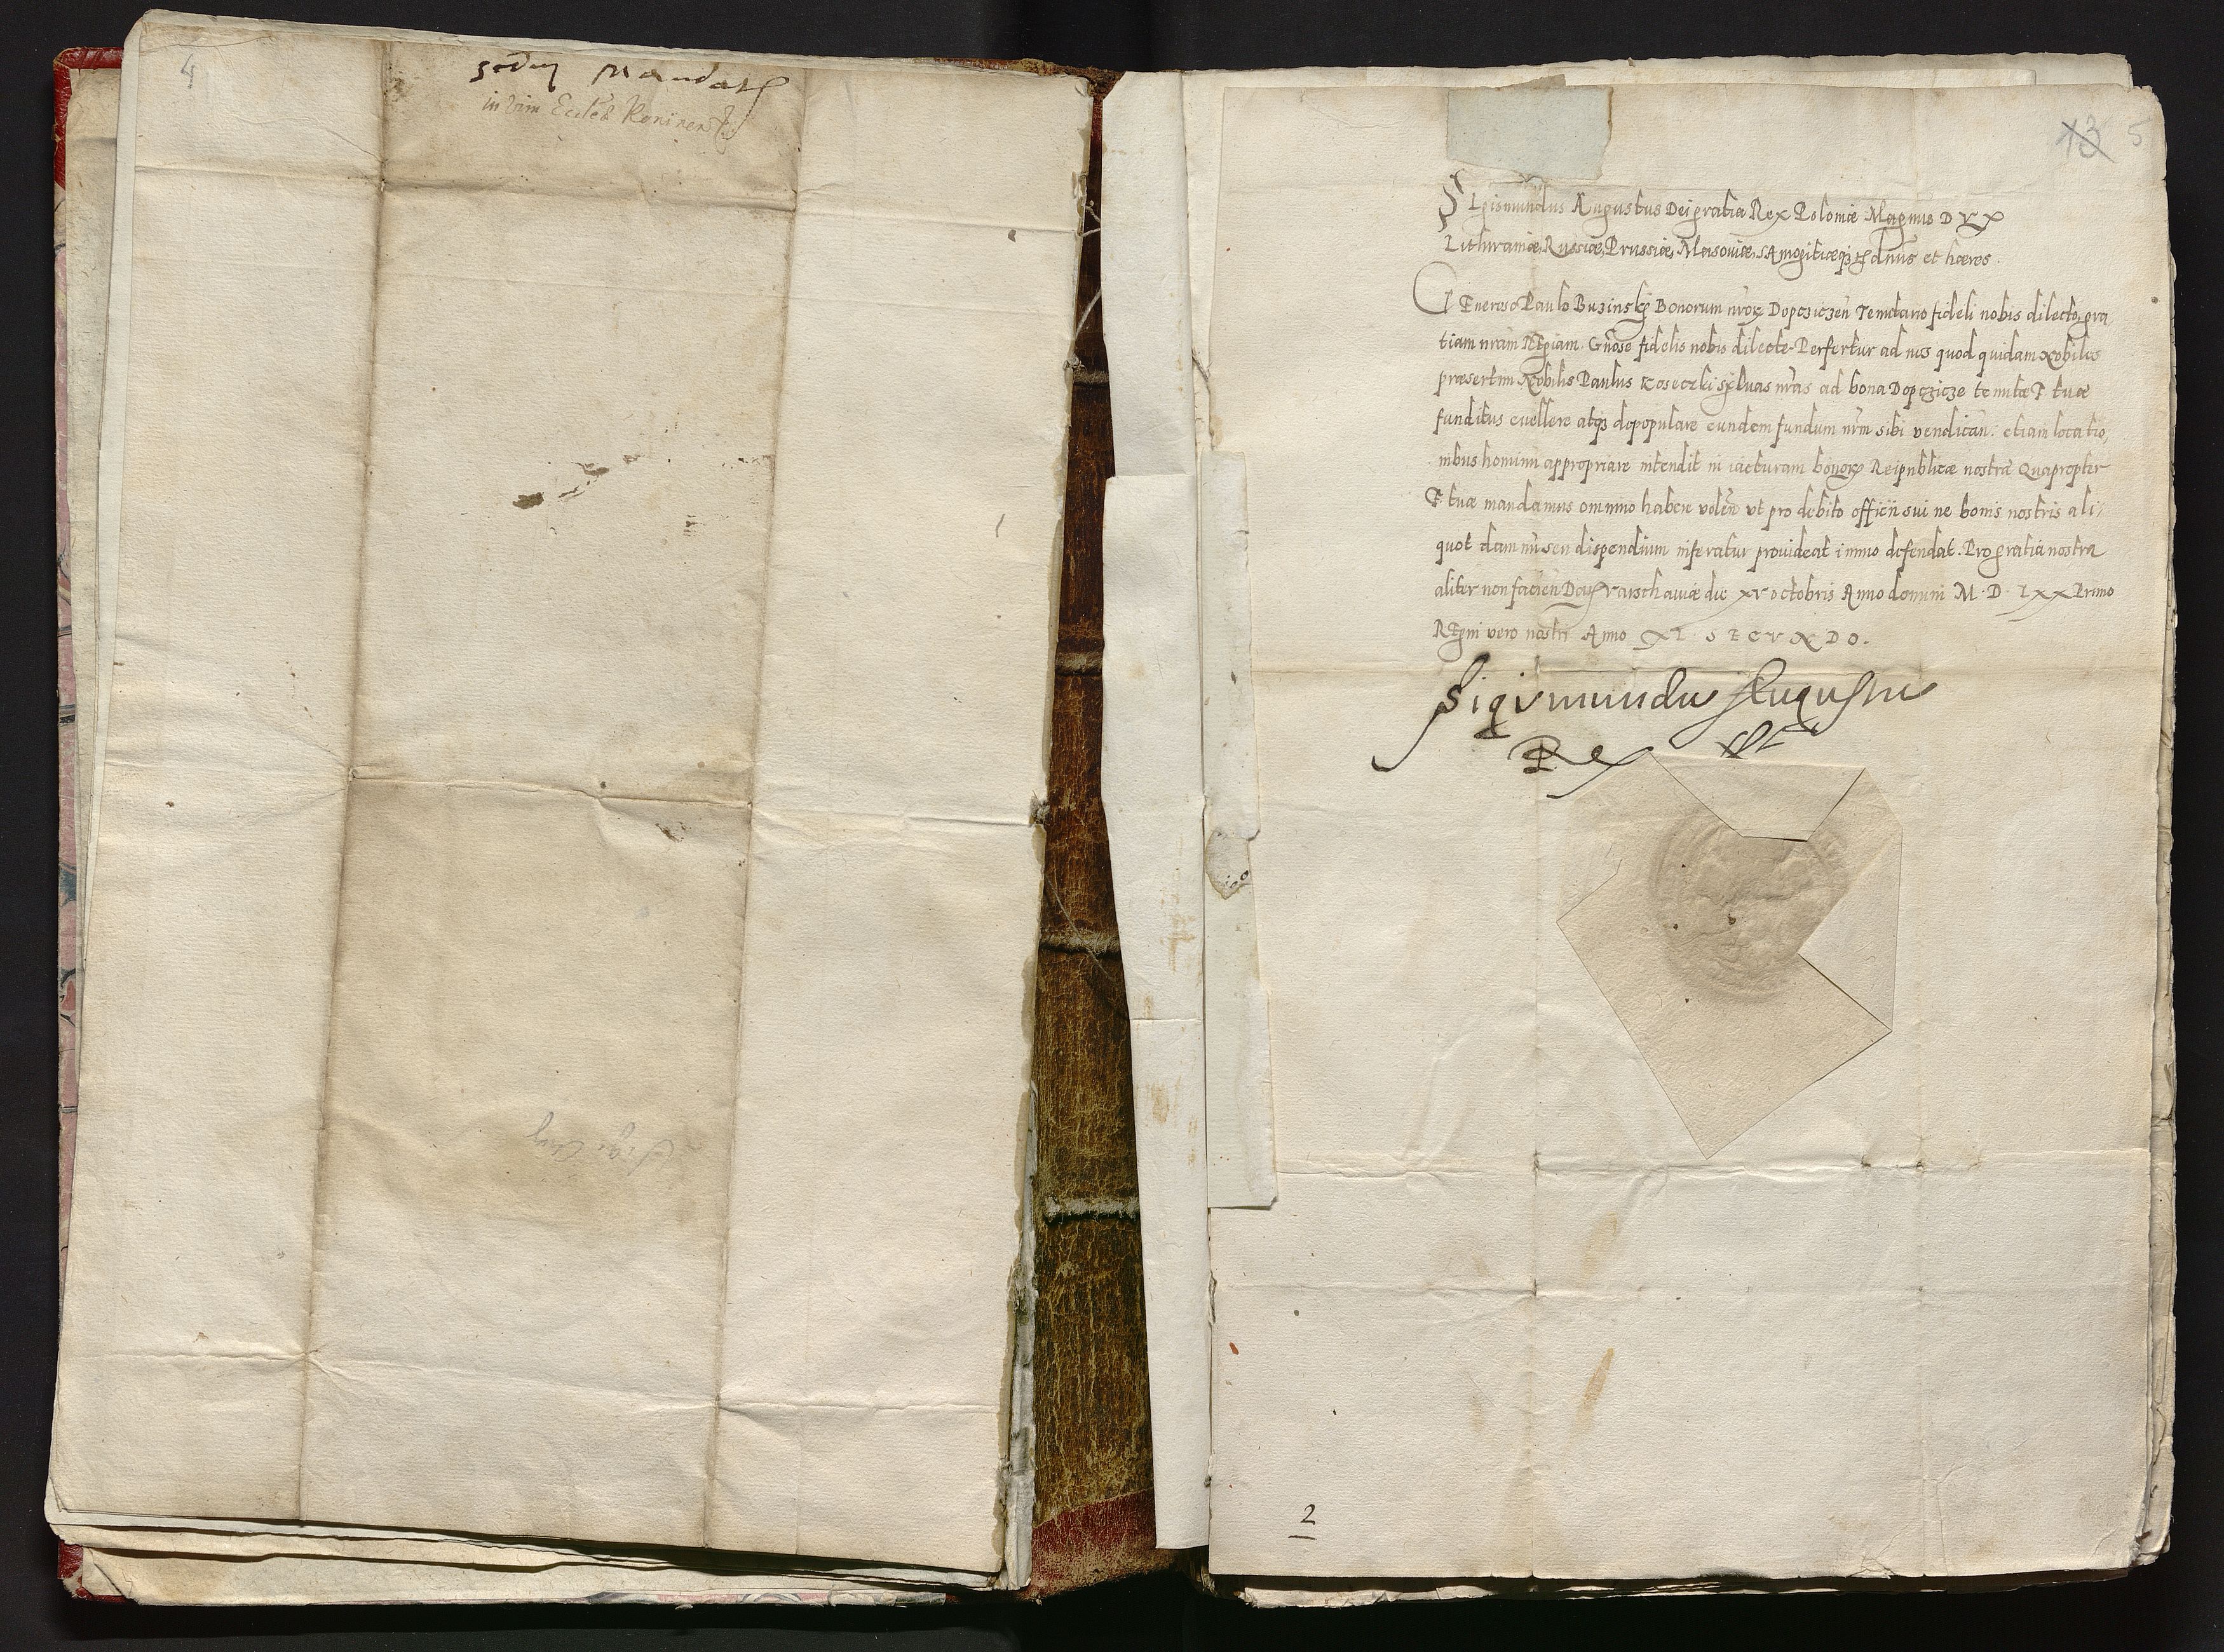 4
in vim
13 5
Sigismundus Augustus Dei gratia Rex Poloniæ Magnus DVX
Lithuaniæ, Russiæ, Prussiæ, Masouiæ, SAmogitiæq3 dnus et hæres.
GEneroso Paulo Buzinsky Bonorum nror Dopcziczen Tenutario fideli nobis dilecto, gra
tiam nram REgiam. Gnose fidelis nobis dilecte. Perfertur ad nos quod quidam Nobiles
præsertim Nobilis Paulus Koseczki syluas nras ad bona Dopczicze tenutæ F. tuæ
funditus euellere atq3 depopulare eundem fundum nrm sibi vendican. etiam locatio,
nibus hominum appropriare intendit in iacturam bonor Reipublicæ nostræ Quapropter
F. tuæ mandamus omnino habere volen vt pro debito officii sui ne bonis nostris ali,
quot damnum seu dispendium inferatur prouideat immo defendat. Pro gratia nostra
aliter non facien Dat varschauiæ die xv octobris Anno domini M. D. Lxx Primo
REgni vero nostri Anno XL SECVNDO.
Sigismundus Augustus
Rex
2